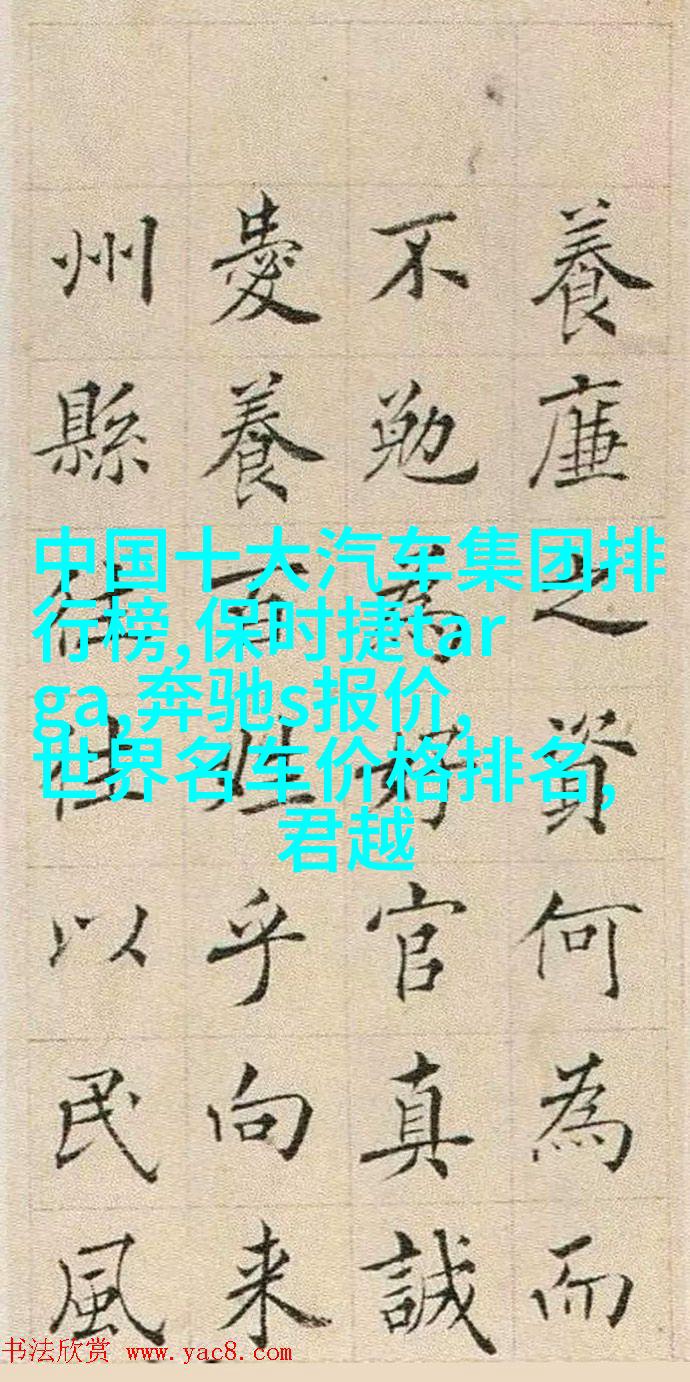 養廉之資何為而
不勉為好官真誠
愛養百姓乎向来
州縣往往以民風
中国十大汽车集团排
行榜,保时捷tar
ga,奔驰s报价,
世界名车价格排名,
君越
书法欣赏 www.yac8.com